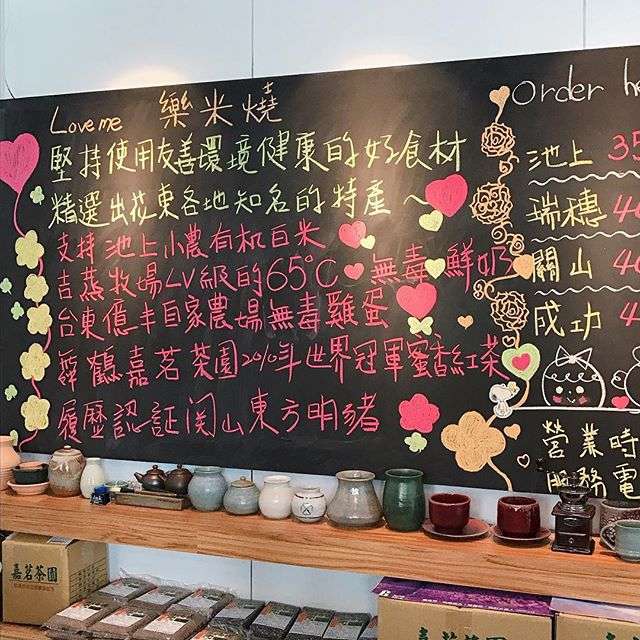 Love me 樂米燒
堅持使用友善環境健康的好食材
精選出花東各地知名的特產～
支持池上小農有机白米
吉蒸牧場LV級的65℃無毒鮮奶
台東億丰自家農場無毒雞蛋
舞鶴嘉茗茶園2010年世界冠軍蜜香紅茶
履歷認証関山東方明豬
Order
池上 35
瑞穗 4
關山 40
成功 4
營業時
服務電
嘉茗茶園